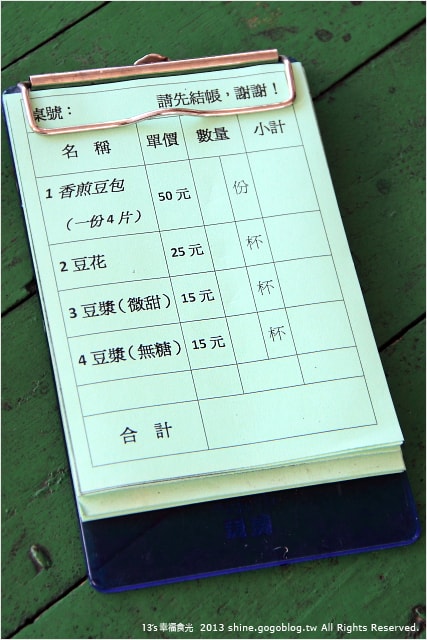 桌號： 請先結帳，謝謝！
名 稱 單價 數量 小計
1 香煎豆包 50 元 份
（一份 4 片）
2 豆花 25 元 杯
3 豆漿（微甜） 15 元 杯
4 豆漿（無糖） 15 元 杯
合 計
13's 幸福食光 2013 shine.gogoblog.tw All Rights Reserved.